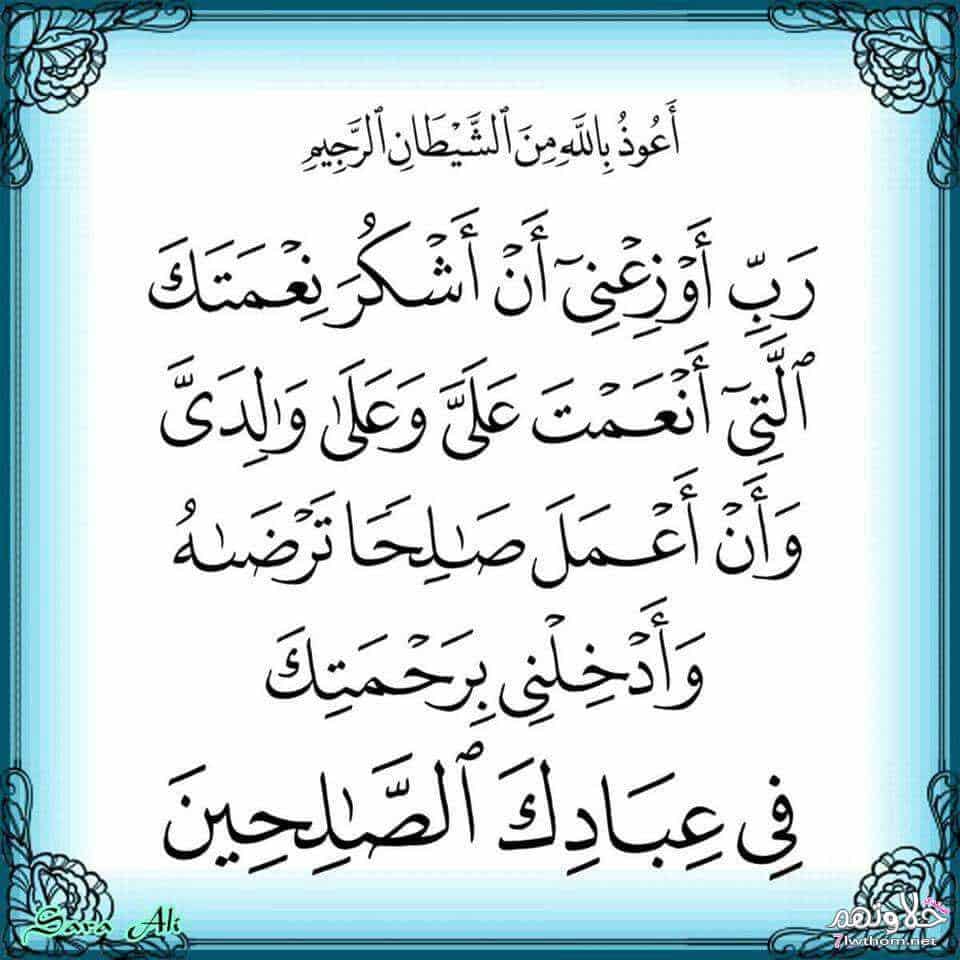 أَعُوذُ بِاللَّهِ مِنَ ٱلشَّيْطَانِ ٱلرَّجِيمِ
رَبِّ أَوْزِعْنِىٓ أَنْ أَشْكُرَ نِعْمَتَكَ
ٱلَّتِىٓ أَنْعَمْتَ عَلَىَّ وَعَلَىٰ وَٰلِدَىَّ
وَأَنْ أَعْمَلَ صَـٰلِحًا تَرْضَىٰهُ
وَأَدْخِلْنِى بِرَحْمَتِكَ
فِى عِبَادِكَ ٱلصَّـٰلِحِينَ
Sara Ali
حلاوتهم
7lwthom.net